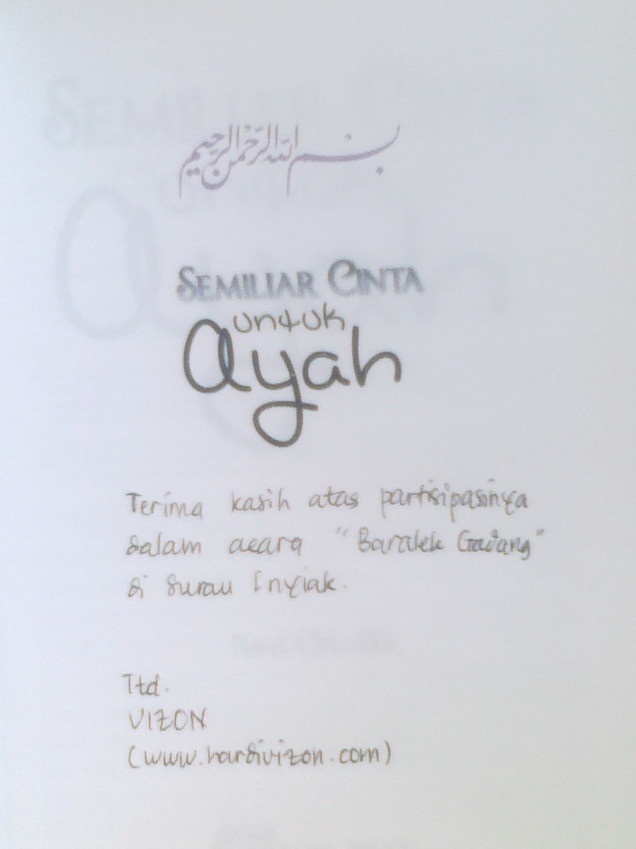 بسم الله الرحمن الرحيم
SEMILIAR CINTA
untuk
Ayah
Terima kasih atas partisipasinya
dalam acara "Baralek Gadang"
di Surau Inyiak.
Ttd.
VIZON
(www.hardivizon.com)